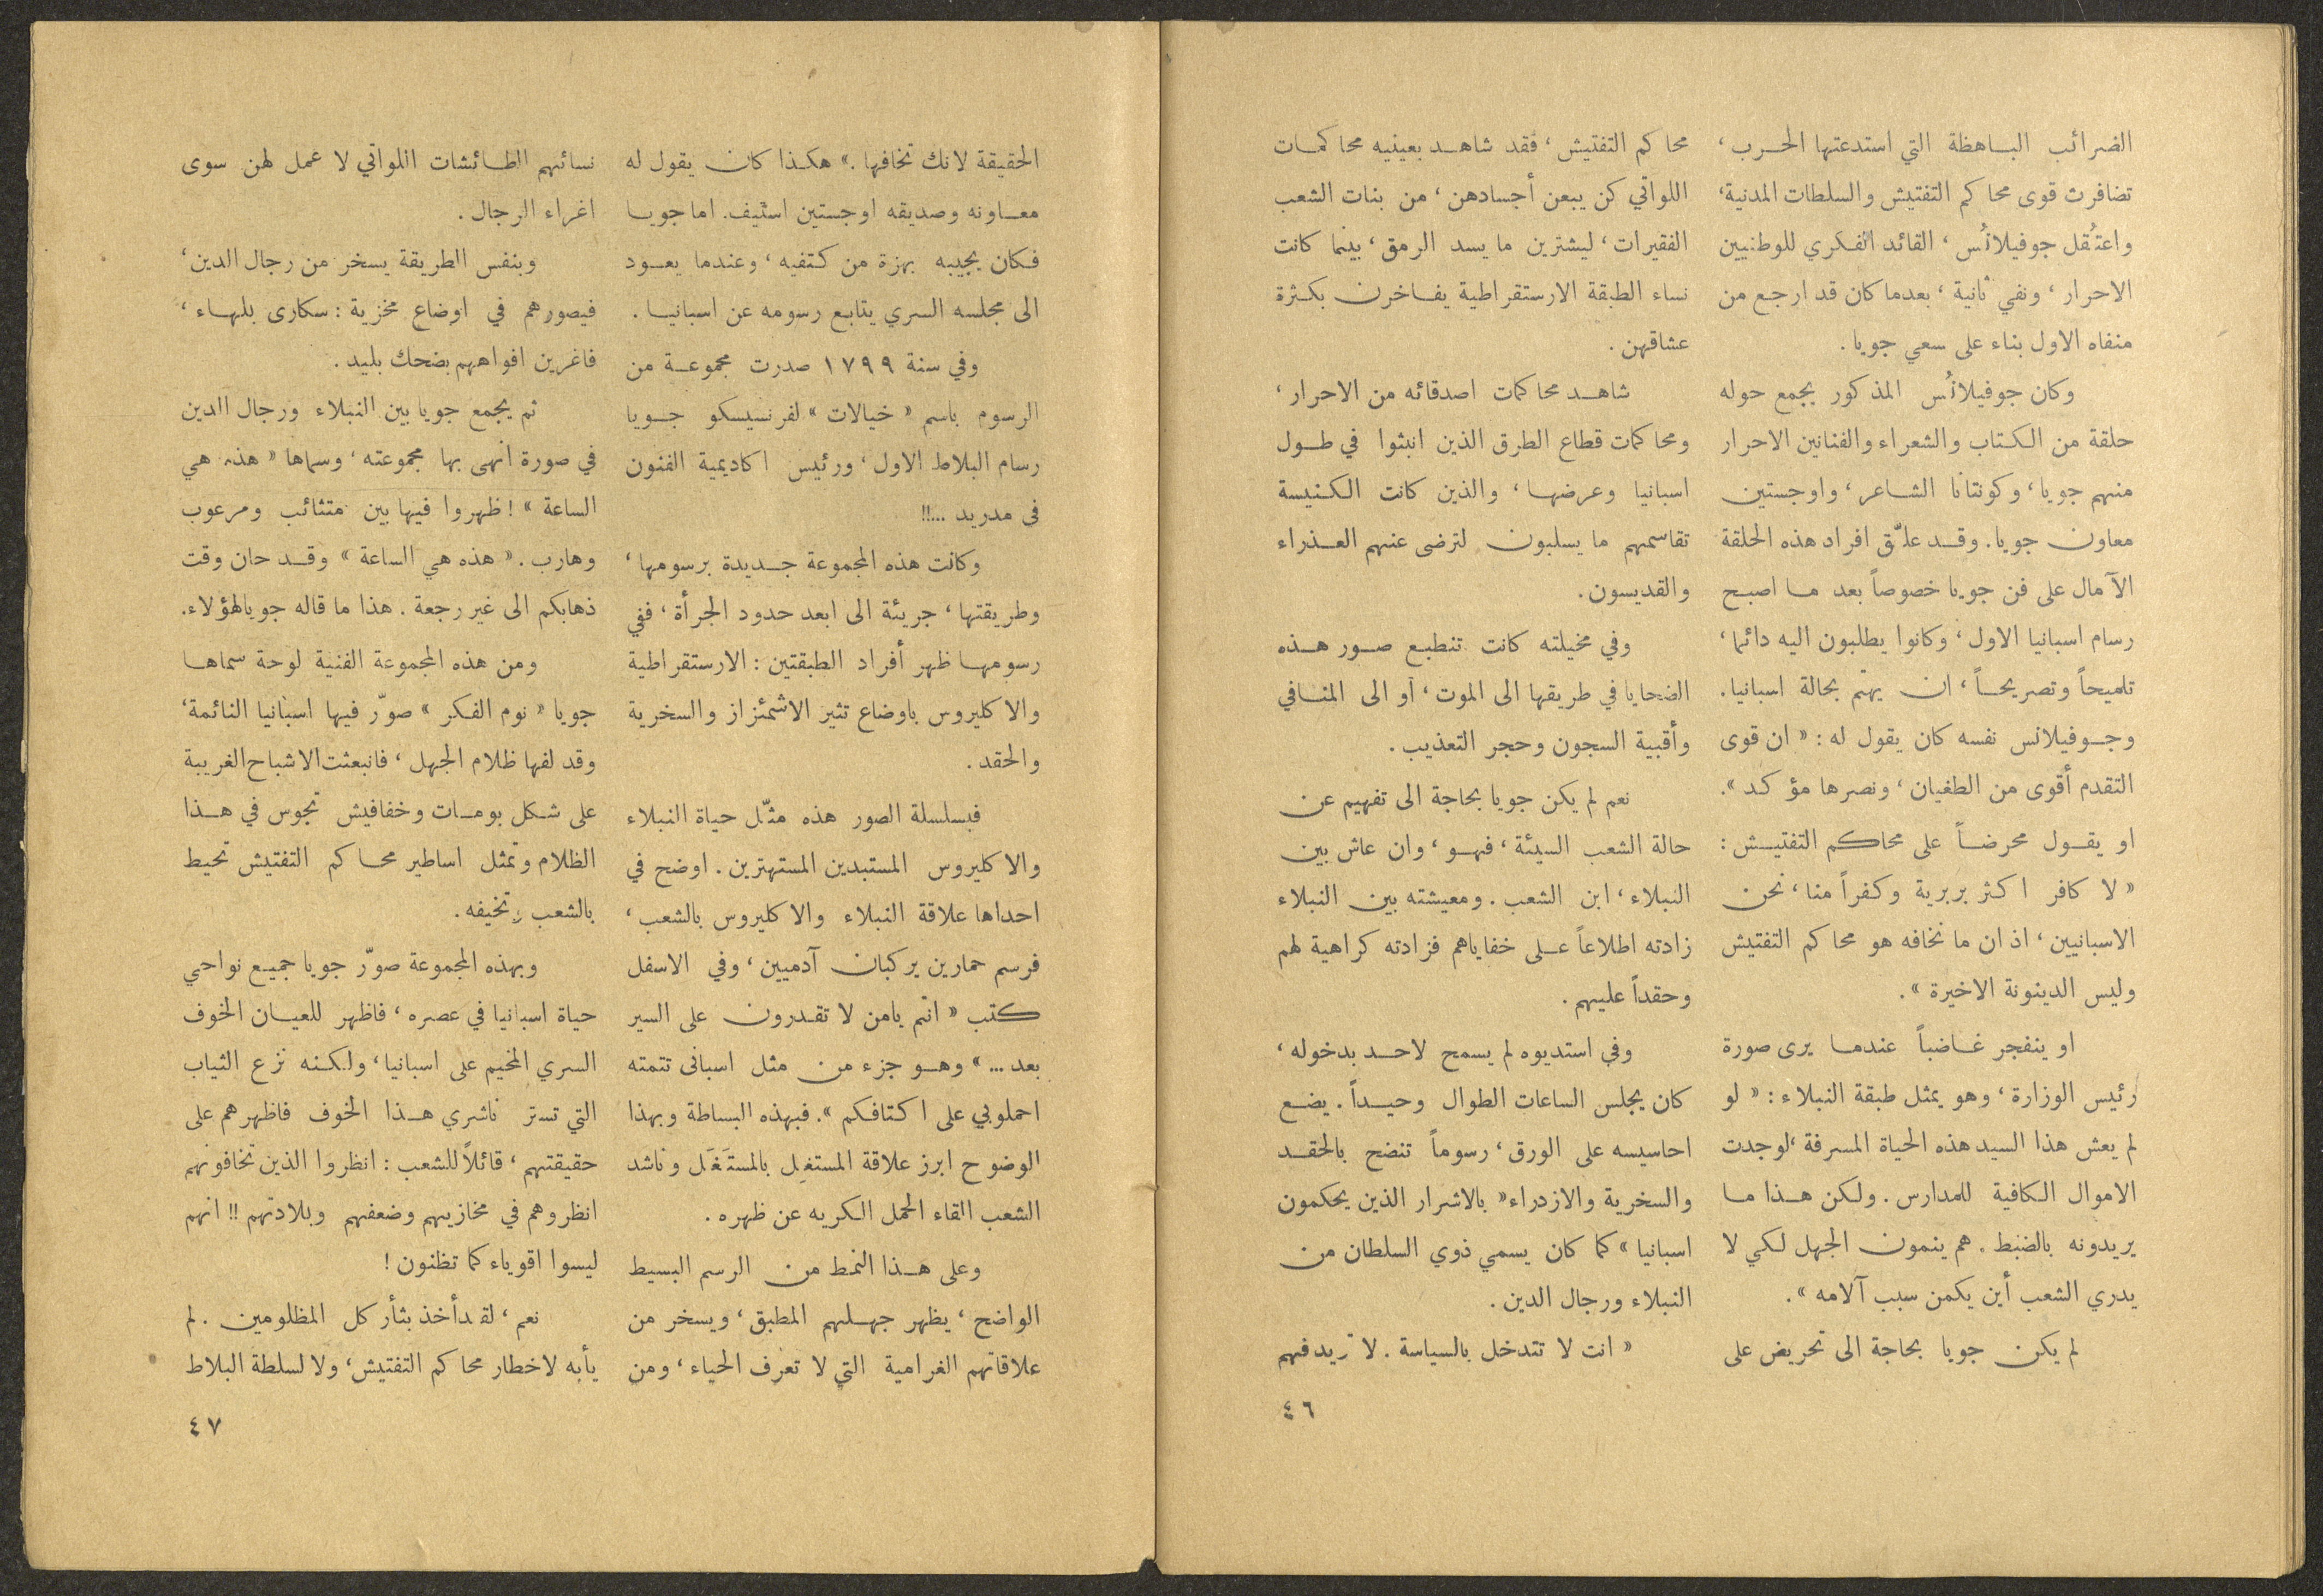 الضرائب الباهظة التي استدعتها الحرب،
تضافرت قوى محاكم التفتيش والسلطات المدنية،
واعتُقل جوفيلانُس، القائد الفكري للوطنيين
الاحرار، ونفي ثانية، بعدما كان قد ارجع من
منفاه الاول بناء على سعي جويا.
وكان جوفيلانُس المذكور يجمع حوله
حلقة من الكتاب والشعراء والفنانين الاحرار
منهم جويا، وكونتانا الشاعر، واوجستين
معاون جويا. وقد علّق افراد هذه الحلقة
الآمال على فن جويا خصوصاً بعد ما اصبح
رسام اسبانيا الاول، وكانوا يطلبون اليه دائما،
تلميحاً وتصريحاً، ان يهتم بحالة اسبانيا.
وجوفيلانس نفسه كان يقول له: « ان قوى
التقدم أقوى من الطغيان، ونصرها مؤكد ».
او يقول محرضاً على محاكم التفتيش:
« لا كافر اكثر بربرية وكفراً منا، نحن
الاسبانيين، اذ ان ما نخافه هو محاكم التفتيش
وليس الدينونة الاخيرة ».
او ينفجر غاضباً عندما يرى صورة
رئيس الوزارة، وهو يمثل طبقة النبلاء: « لو
لم يعش هذا السيد هذه الحياة المسرفة، لوجدت
الاموال الكافية للمدارس. ولكن هذا ما
يريدونه بالضبط. هم ينمون الجهل لكي لا
يدري الشعب أين يكمن سبب آلامه ».
لم يكن جويا بحاجة الى تحريض على
محاكم التفتيش، فقد شاهد بعينيه محاكمات
اللواتي كن يبعن أجسادهن، من بنات الشعب
الفقيرات، ليشترين ما يسد الرمق، بينما كانت
نساء الطبقة الارستقراطية يفاخرن بكثرة
عشاقهن.
شاهد محاكمات اصدقائه من الاحرار،
ومحاكمات قطاع الطرق الذين انبثوا في طول
اسبانيا وعرضها، والذين كانت الكنيسة
تقاسمهم ما يسلبون لترضى عنهم العذراء
والقديسون.
وفي مخيلته كانت تنطبع صور هذه
الضحايا في طريقها الى الموت، أو الى المنافي
وأقبية السجون وحجر التعذيب.
نعم لم يكن جويا بحاجة الى تفهيم عن
حالة الشعب السيئة، فهو، وان عاش بين
النبلاء، ابن الشعب. ومعيشته بين النبلاء
زادته اطلاعاً على خفاياهم فزادته كراهية لهم
وحقداً عليهم.
وفي استديوه لم يسمح لاحد بدخوله،
كان يجلس الساعات الطوال وحيداً. يضع
احاسيسه على الورق، رسوماً تنضح بالحقد
والسخرية والازدراء « بالاشرار الذين يحكمون
اسبانيا » كما كان يسمي ذوي السلطان من
النبلاء ورجال الدين.
« انت لا تتدخل بالسياسة. لا تريد فهم
٤٦
الحقيقة لانك تخافها.» هكذا كان يقول له
معاونه وصديقه اوجستين استيف. اما جويا
فكان يجيبه بهزة من كتفيه، وعندما يعود
الى مجلسه السري يتابع رسومه عن اسبانيا.
وفي سنة ١٧٩٩ صدرت مجموعة من
الرسوم باسم « خيالات » لفرنسيسكو جويا
رسام البلاط الاول، ورئيس اكاديمية الفنون
في مدريد ...!!
وكانت هذه المجموعة جديدة برسومها،
وطريقتها، جريئة الى ابعد حدود الجرأة، ففي
رسومها ظهر أفراد الطبقتين: الارستقراطية
والاكليروس باوضاع تثير الاشمئزاز والسخرية
والحقد.
فبسلسلة الصور هذه مثّل حياة النبلاء
والاكليروس المستبدين المستهترين. اوضح في
احداها علاقة النبلاء والاكليروس بالشعب،
فرسم حمارين يركبان آدميين، وفي الاسفل
كتب « انتم يامن لا تقدرون على السير
بعد ... » وهو جزء من مثل اسباني تتمته
احملوني على اكتافكم ». فبهذه البساطة وبهذا
الوضوح ابرز علاقة المستغِل بالمستَغَل وناشد
الشعب القاء الحمل الكريه عن ظهره.
وعلى هذا النمط من الرسم البسيط
الواضح، يظهر جهلهم المطبق، ويسخر من
علاقاتهم الغرامية التي لا تعرف الحياء، ومن
نسائهم الطائشات اللواتي لا عمل لهن سوى
اغراء الرجال.
وبنفس الطريقة يسخر من رجال الدين،
فيصورهم في اوضاع مخزية: سكارى بلهاء،
فاغرين افواههم بضحك بليد.
ثم يجمع جويا بين النبلاء ورجال الدين
في صورة انهى بها مجموعته، وسماها « هذه هي
الساعة »! ظهروا فيها بين متثائب ومرعوب
وهارب. « هذه هي الساعة » وقد حان وقت
ذهابكم الى غير رجعة. هذا ما قاله جويا لهؤلاء.
ومن هذه المجموعة الفنية لوحة سماها
جويا « نوم الفكر » صوّر فيها اسبانيا النائمة،
وقد لفها ظلام الجهل، فانبعثت الاشباح الغريبة
على شكل بومات وخفافيش تجوس في هذا
الظلام وتمثل اساطير محاكم التفتيش تحيط
بالشعب وتخيفه.
وبهذه المجموعة صوّر جويا جميع نواحي
حياة اسبانيا في عصره، فاظهر للعيان الخوف
السري المخيم على اسبانيا، ولكنه نزع الثياب
التي تستر ناشري هذا الخوف فاظهرهم على
حقيقتهم، قائلاً للشعب: انظروا الذين تخافونهم
انظروهم في مخازيهم وضعفهم وبلادتهم!! انهم
ليسوا اقوياء كما تظنون!
نعم، لقد أخذ بثأر كل المظلومين. لم
يأبه لاخطار محاكم التفتيش، ولا لسلطة البلاط
٤٧